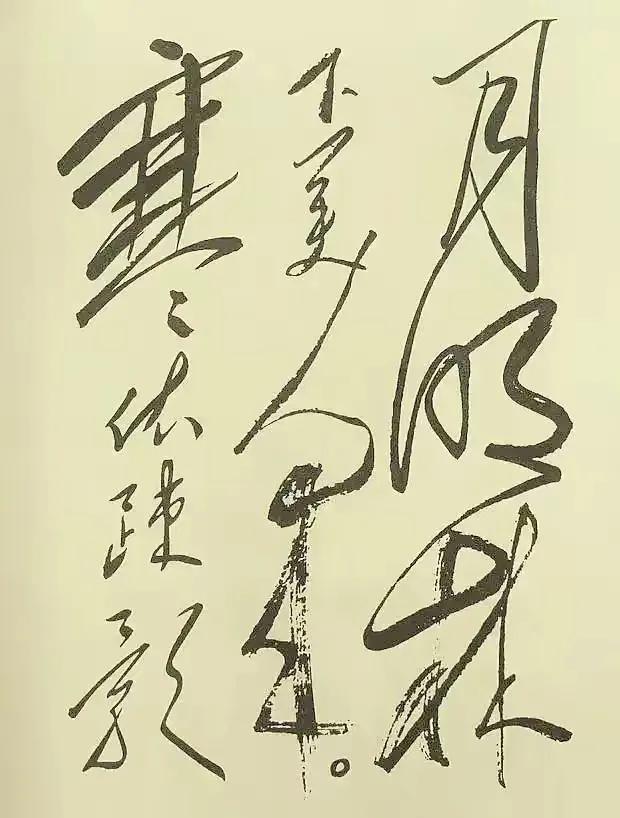 月明林
下美人来。
寒依疏影